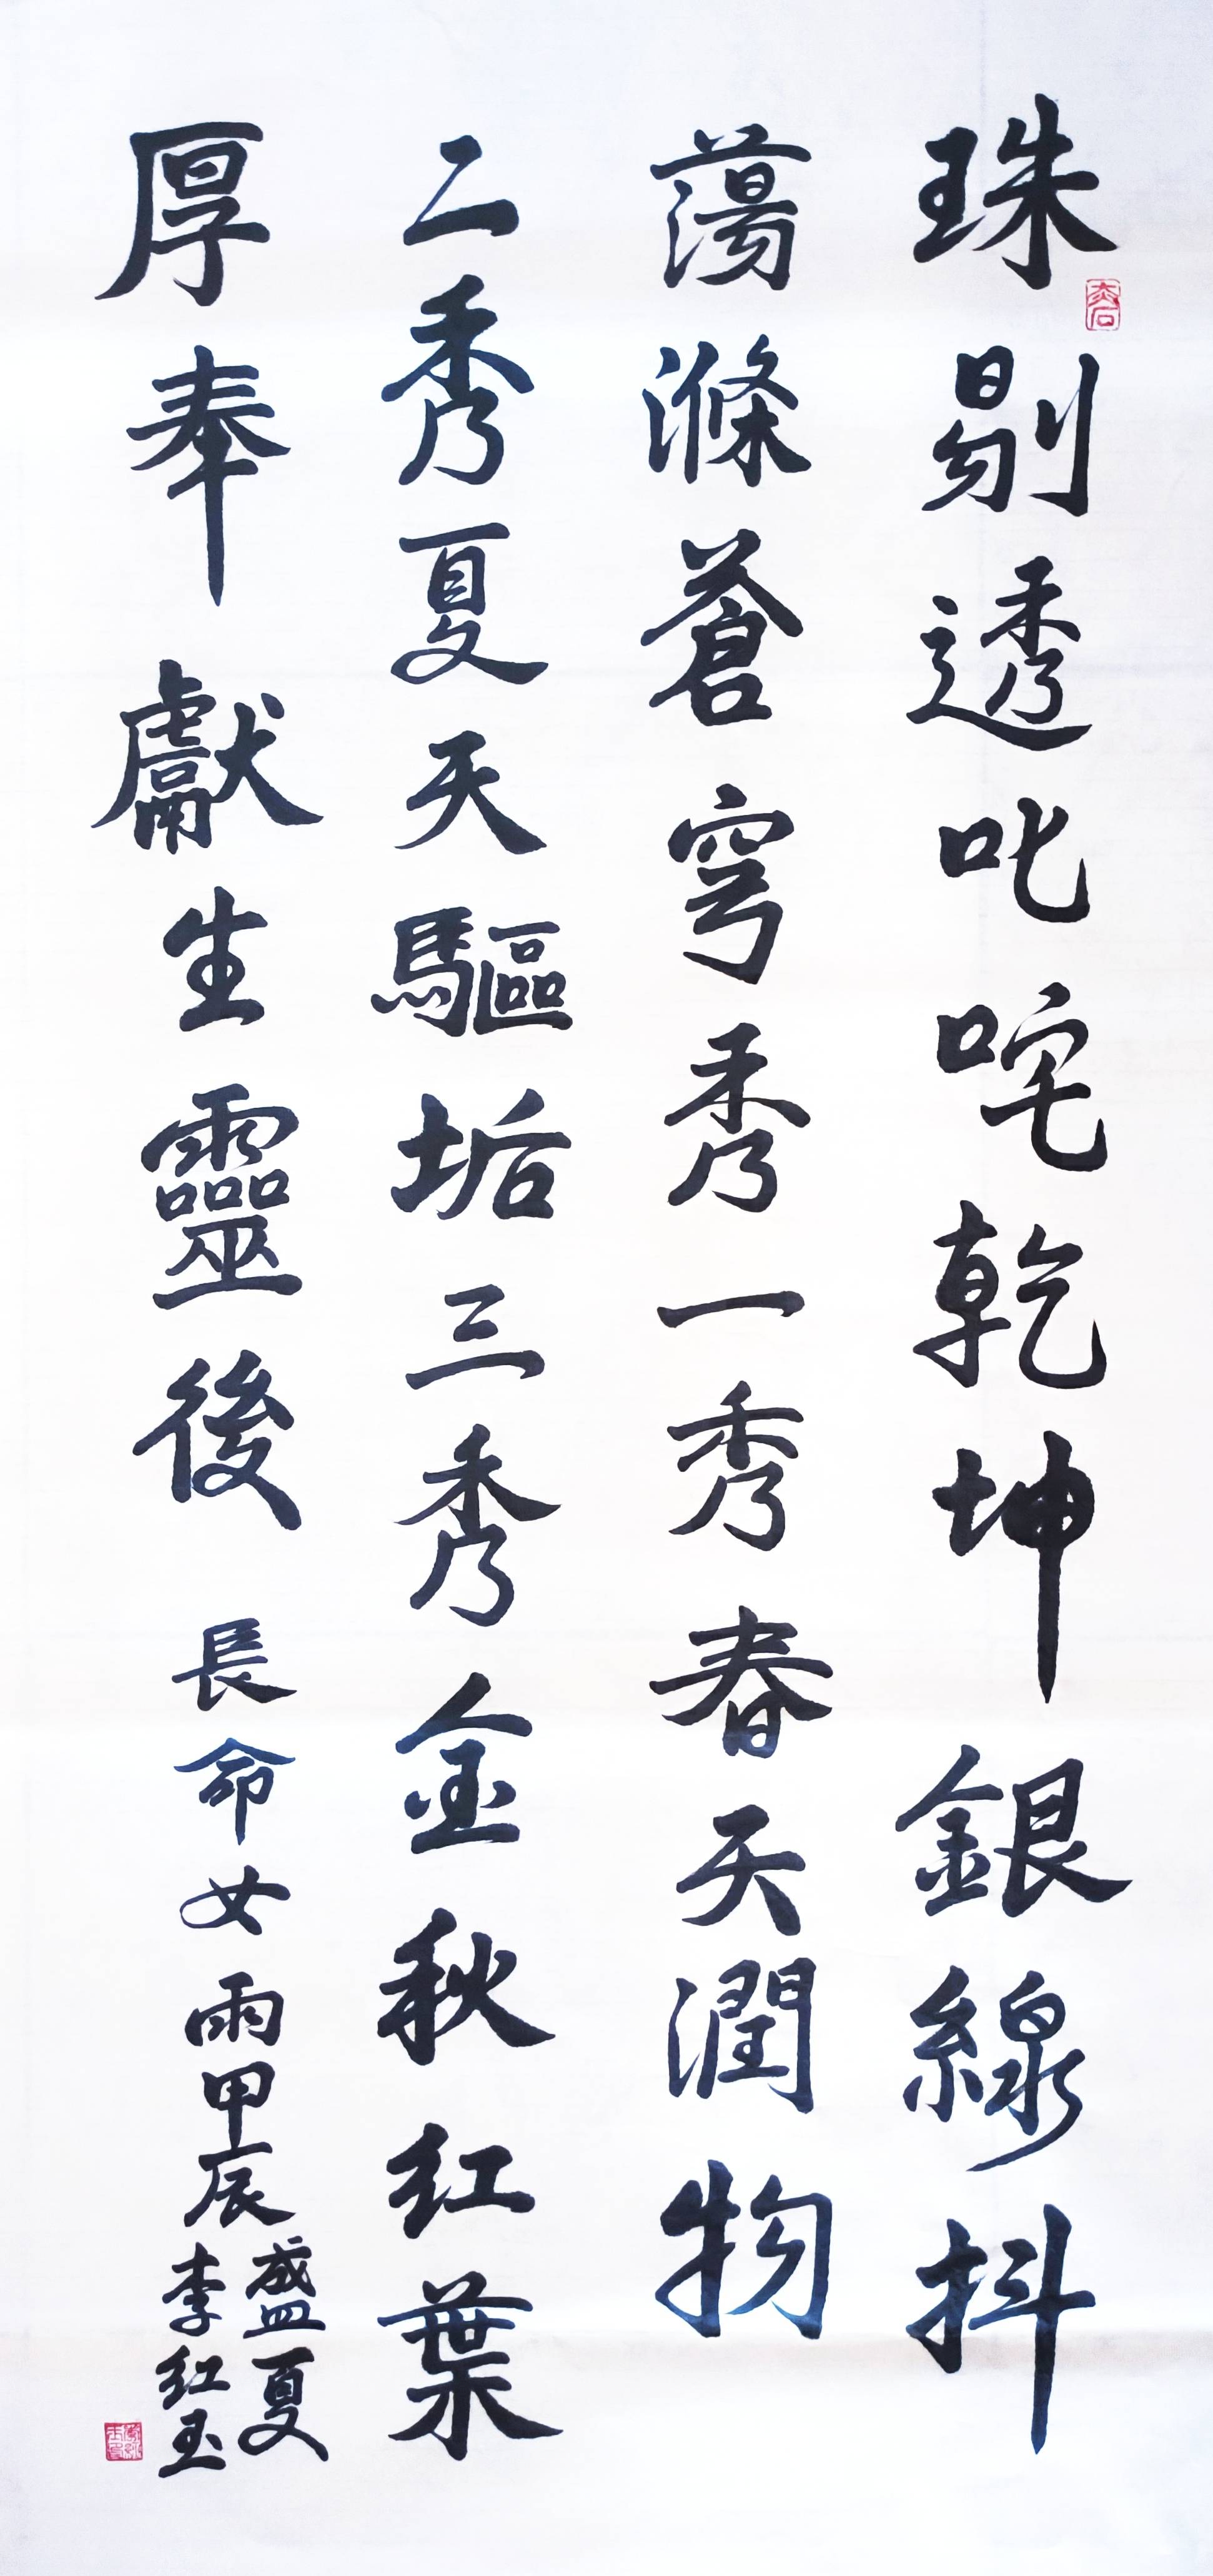 珠剔透叱咤乾坤銀線抖
蕩滌蒼穹秀一秀春天潤物
二秀夏天驅垢三秀金秋红葉
厚奉獻生靈後
長命女雨甲辰
盛夏
李红玉